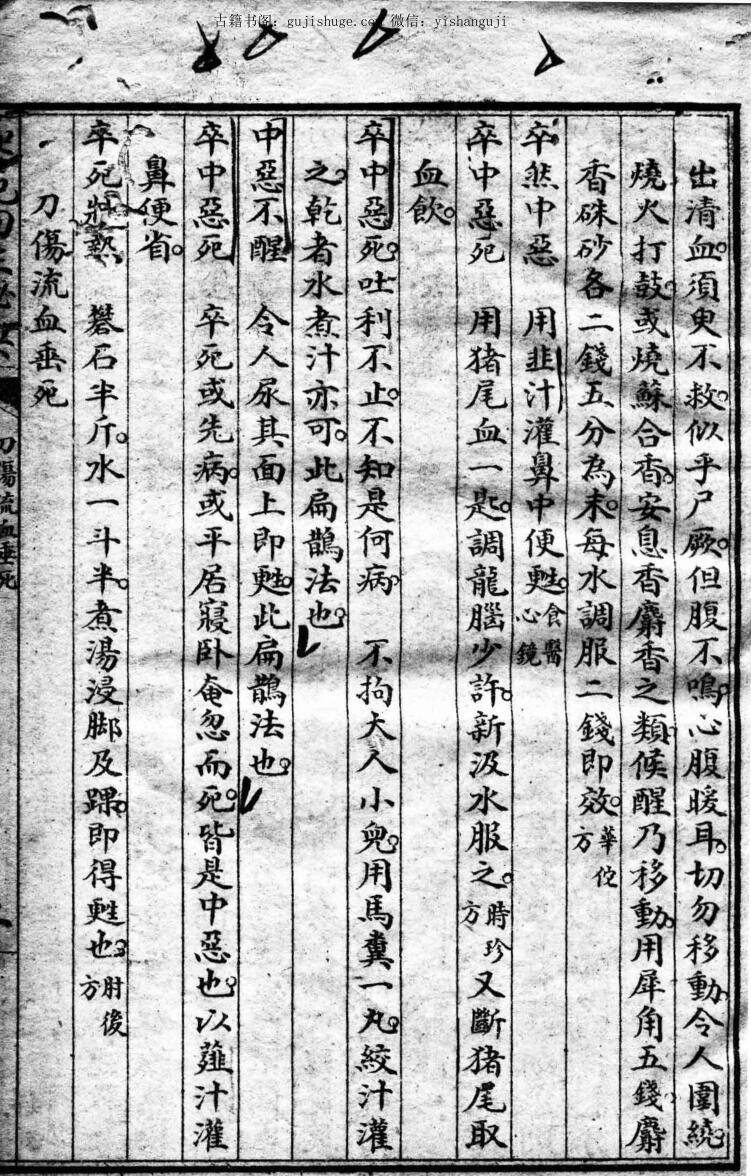 古籍书阁：gujishuge.com 微信：yishanguji
出清血。須臾不救。似乎尸厥。但腹不鳴。心腹暖耳。切勿移動。令人圍繞。
燒火打鼓。或燒蘇合香。安息香麝香之類。候醒乃移動。用犀角五錢。麝
香硃砂各二錢五分為末。每水調服二錢即效。華佗方
卒然中惡　用韭汁灌鼻中便甦。食醫心鏡
卒中惡死　用猪尾血一匙。調龍腦少許。新汲水服之。時珍方　又斷猪尾取
血飲。
卒中惡死。吐利不止。不知是何病。　不拘大人小兒。用馬糞一丸。絞汁灌
之。乾者水煮汁亦可。此扁鵲法也。
中惡不醒　令人尿其面上即甦。此扁鵲法也。
卒中惡死　卒死或先病。或平居寢卧奄忽而死。皆是中惡也。以薤汁灌
鼻便省。
卒死壯熱　礬石半斤。水一斗半。煮湯浸脚及踝。即得甦也。肘後方
刀傷流血垂死
刀傷流血垂死